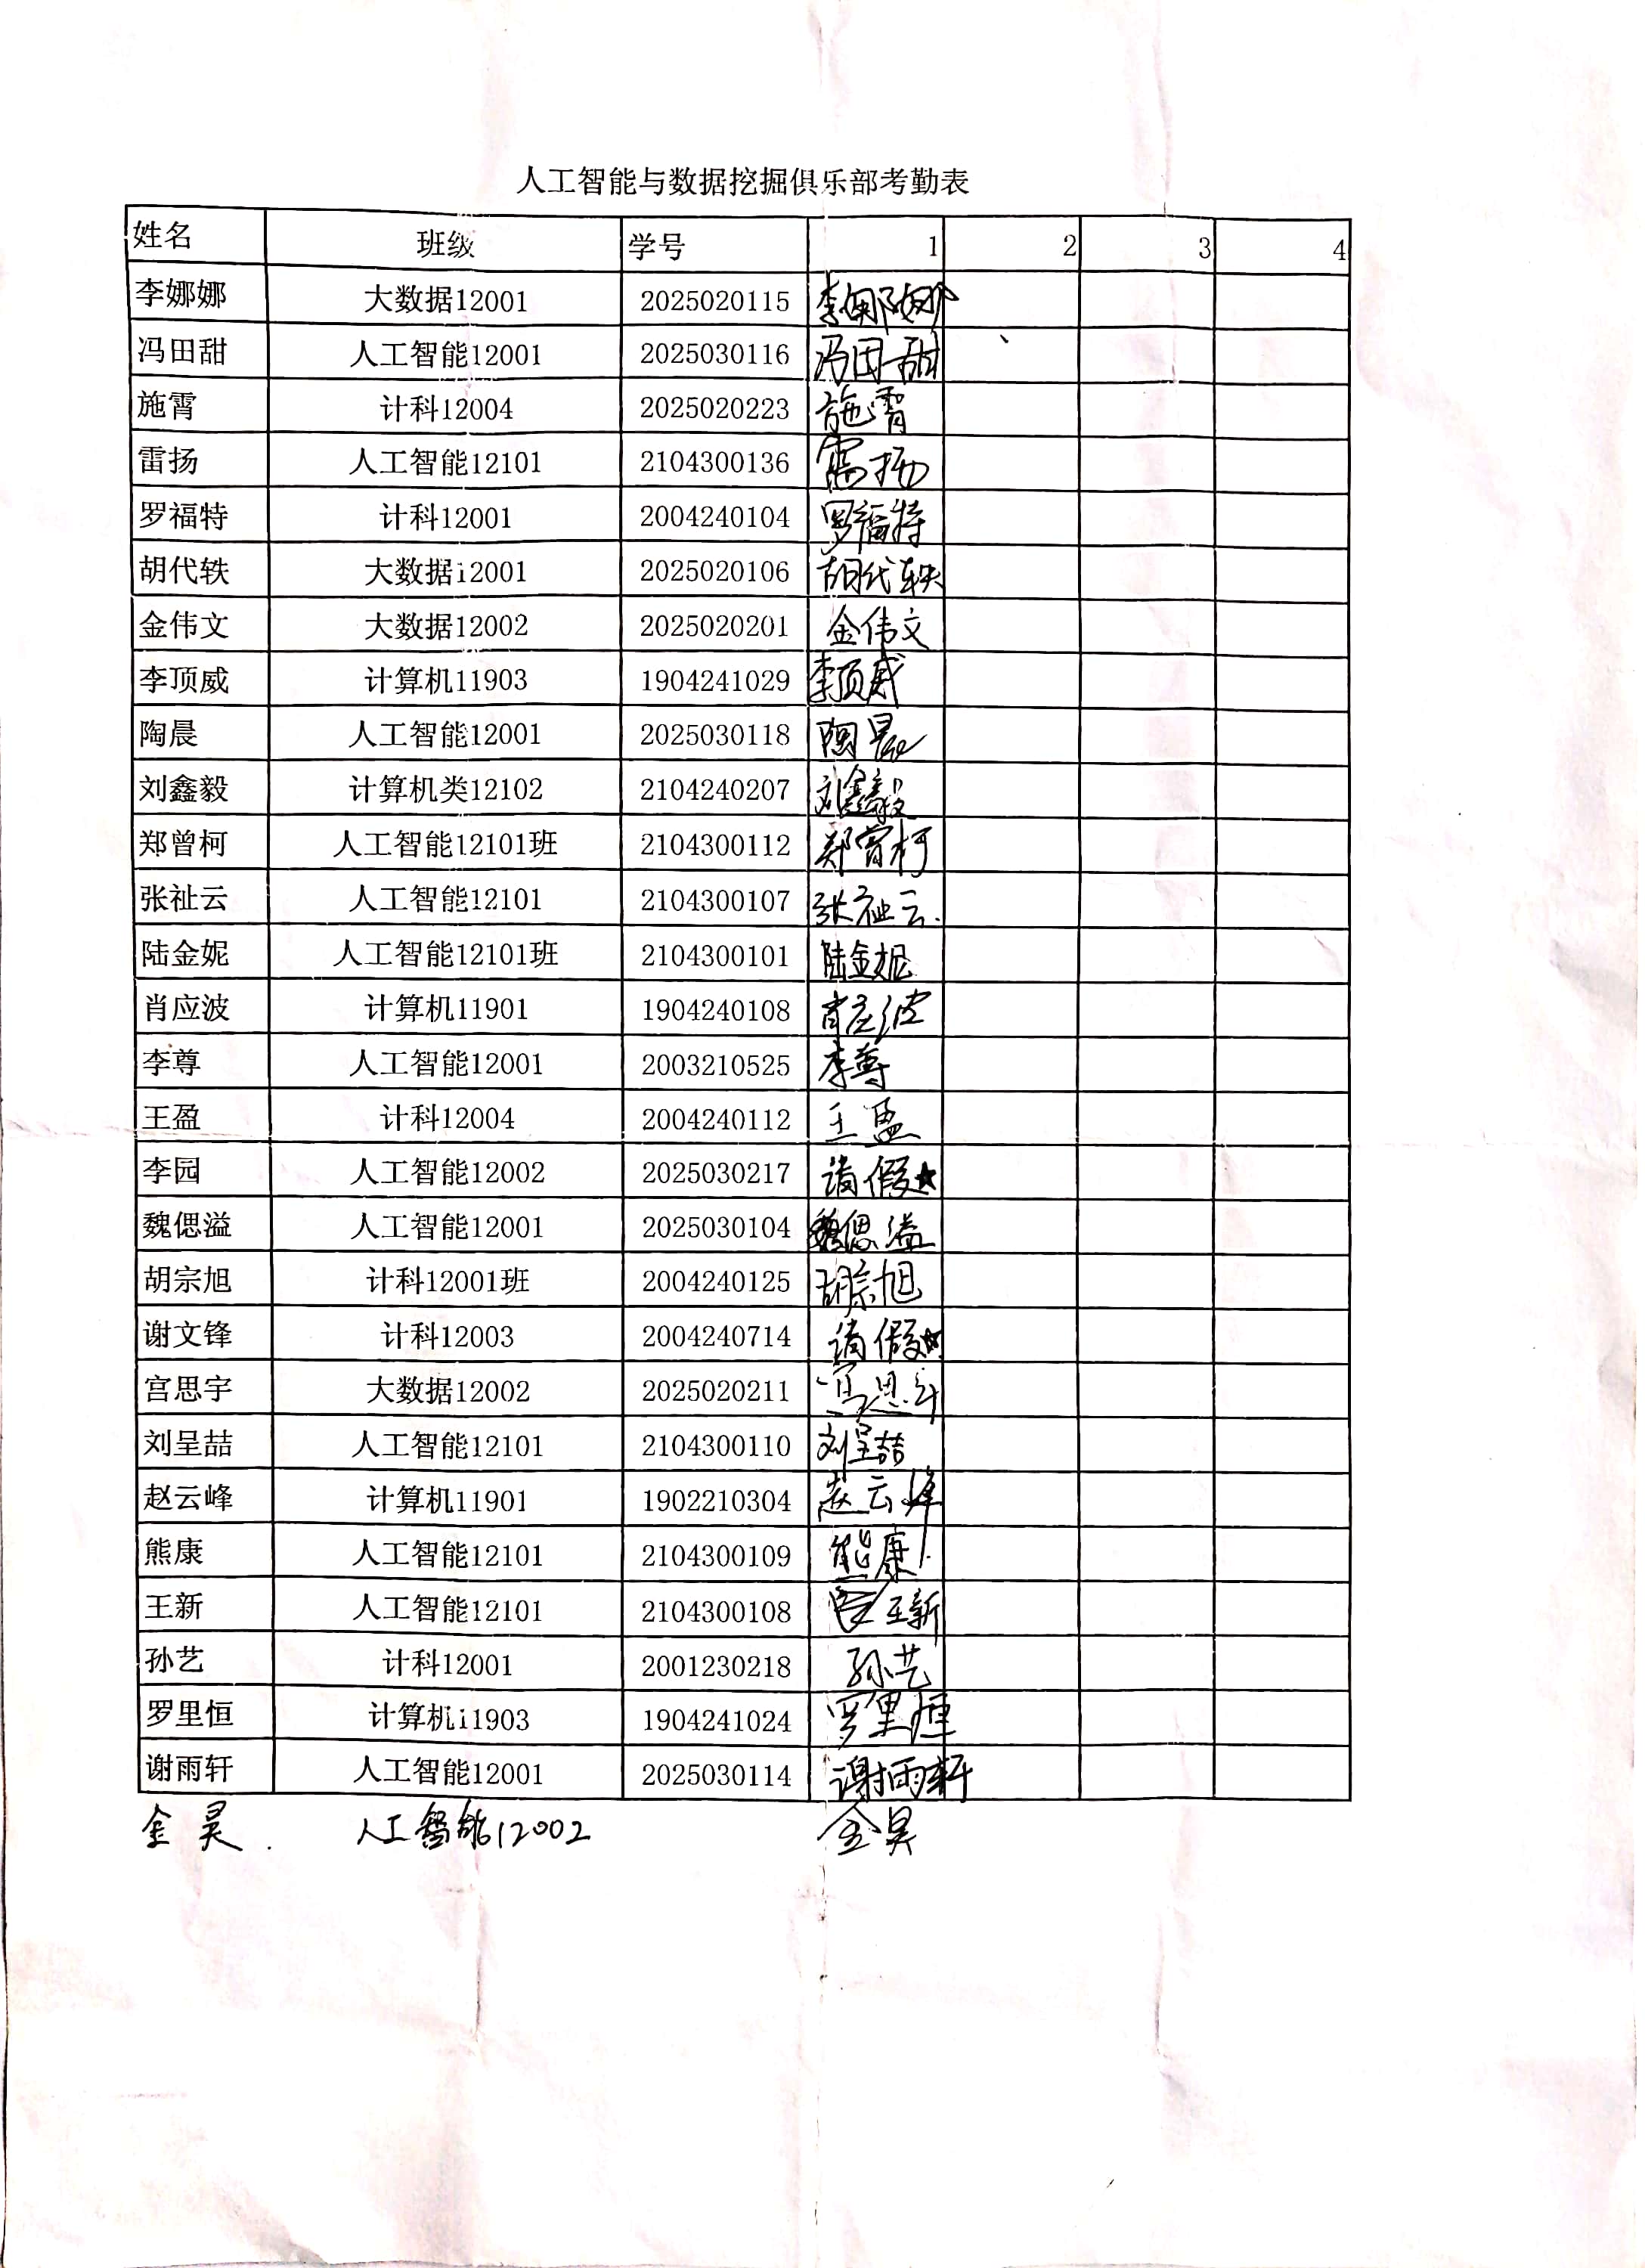 人工智能与数据挖掘俱乐部考勤表
姓名 班级 学号 1 2 3 4
李娜娜 大数据12001 2025020115 李娜娜
冯田甜 人工智能12001 2025030116 冯田甜
施霄 计科12004 2025020223 施霄
雷扬 人工智能12101 2104300136 雷扬
罗福特 计科12001 2004240104 罗福特
胡代轶 大数据12001 2025020106 胡代轶
金伟文 大数据12002 2025020201 金伟文
李顶威 计算机11903 1904241029 李顶威
陶晨 人工智能12001 2025030118 陶晨
刘鑫毅 计算机类12102 2104240207 刘鑫毅
郑曾柯 人工智能12101班 2104300112 郑曾柯
张祉云 人工智能12101 2104300107 张祉云.
陆金妮 人工智能12101班 2104300101 陆金妮
肖应波 计算机11901 1904240108 肖应波
李尊 人工智能12001 2003210525 李尊
王盈 计科12004 2004240112 王盈
李园 人工智能12002 2025030217 请假★
魏偲溢 人工智能12001 2025030104 魏偲溢
胡宗旭 计科12001班 2004240125 胡宗旭
谢文锋 计科12003 2004240714 请假★
宫思宇 大数据12002 2025020211 宫思宇
刘呈喆 人工智能12101 2104300110 刘呈喆
赵云峰 计算机11901 1902210304 赵云峰
熊康 人工智能12101 2104300109 熊康
王新 人工智能12101 2104300108 王新
孙艺 计科12001 2001230218 孙艺
罗里恒 计算机11903 1904241024 罗里恒
谢雨轩 人工智能12001 2025030114 谢雨轩
金昊. 人工智能12002 金昊